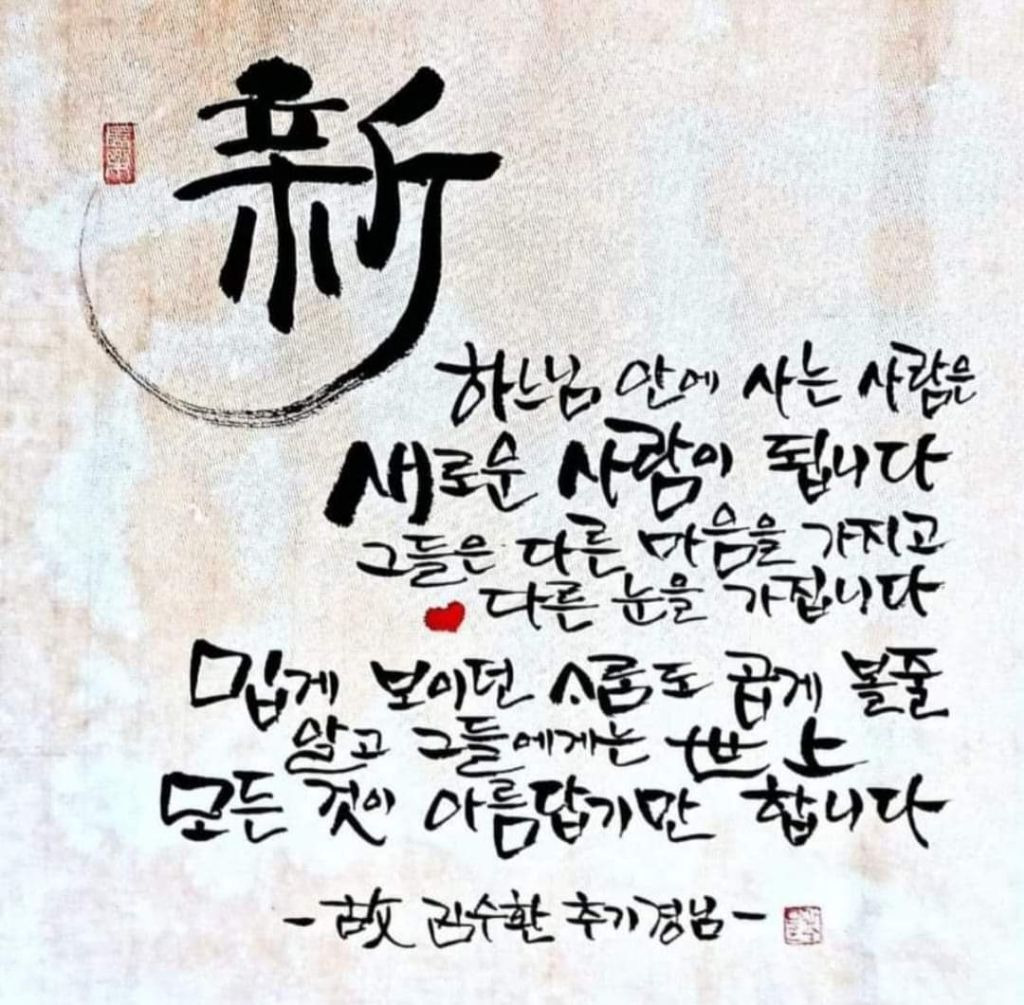 新
하느님 안에 사는 사람은
새로운 사람이 됩니다
그들은 다른 마음을 가지고
다른 눈을 가집니다
밉게 보이던 사람도 곱게 볼줄
알고 그들에게는 世上
모든 것이 아름답기만 합니다
-故 김수환 추기경님-